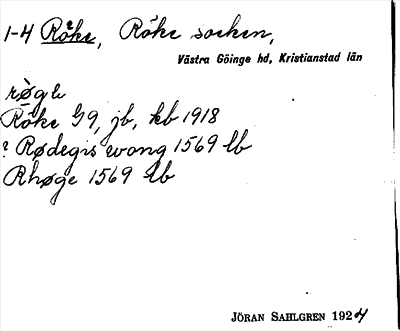 1-4 Röke, Röke socken,
Västra Göinge hd, Kristianstad län
rögle
Röke G9, jb, kb 1918
? Rødegis wong 1569 lb
Rhøge 1569 lb
JÖRAN SAHLGREN 1924